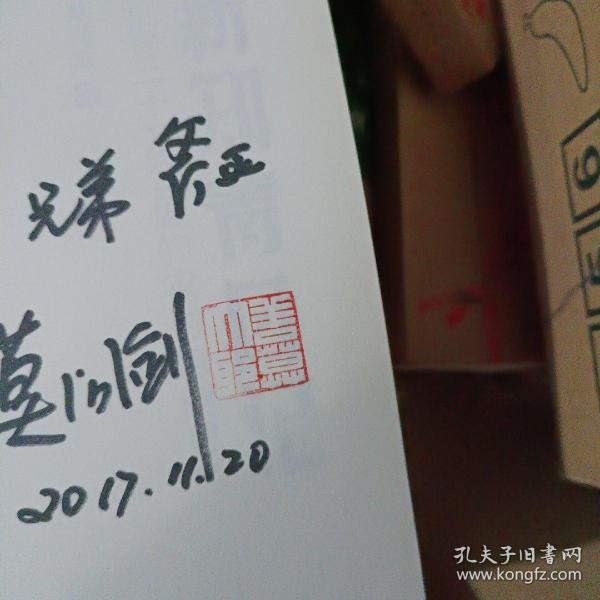 兄弟 斧正
莫问剑
2017.11.20
6
5
孔夫子旧书网
www.kongfz.com